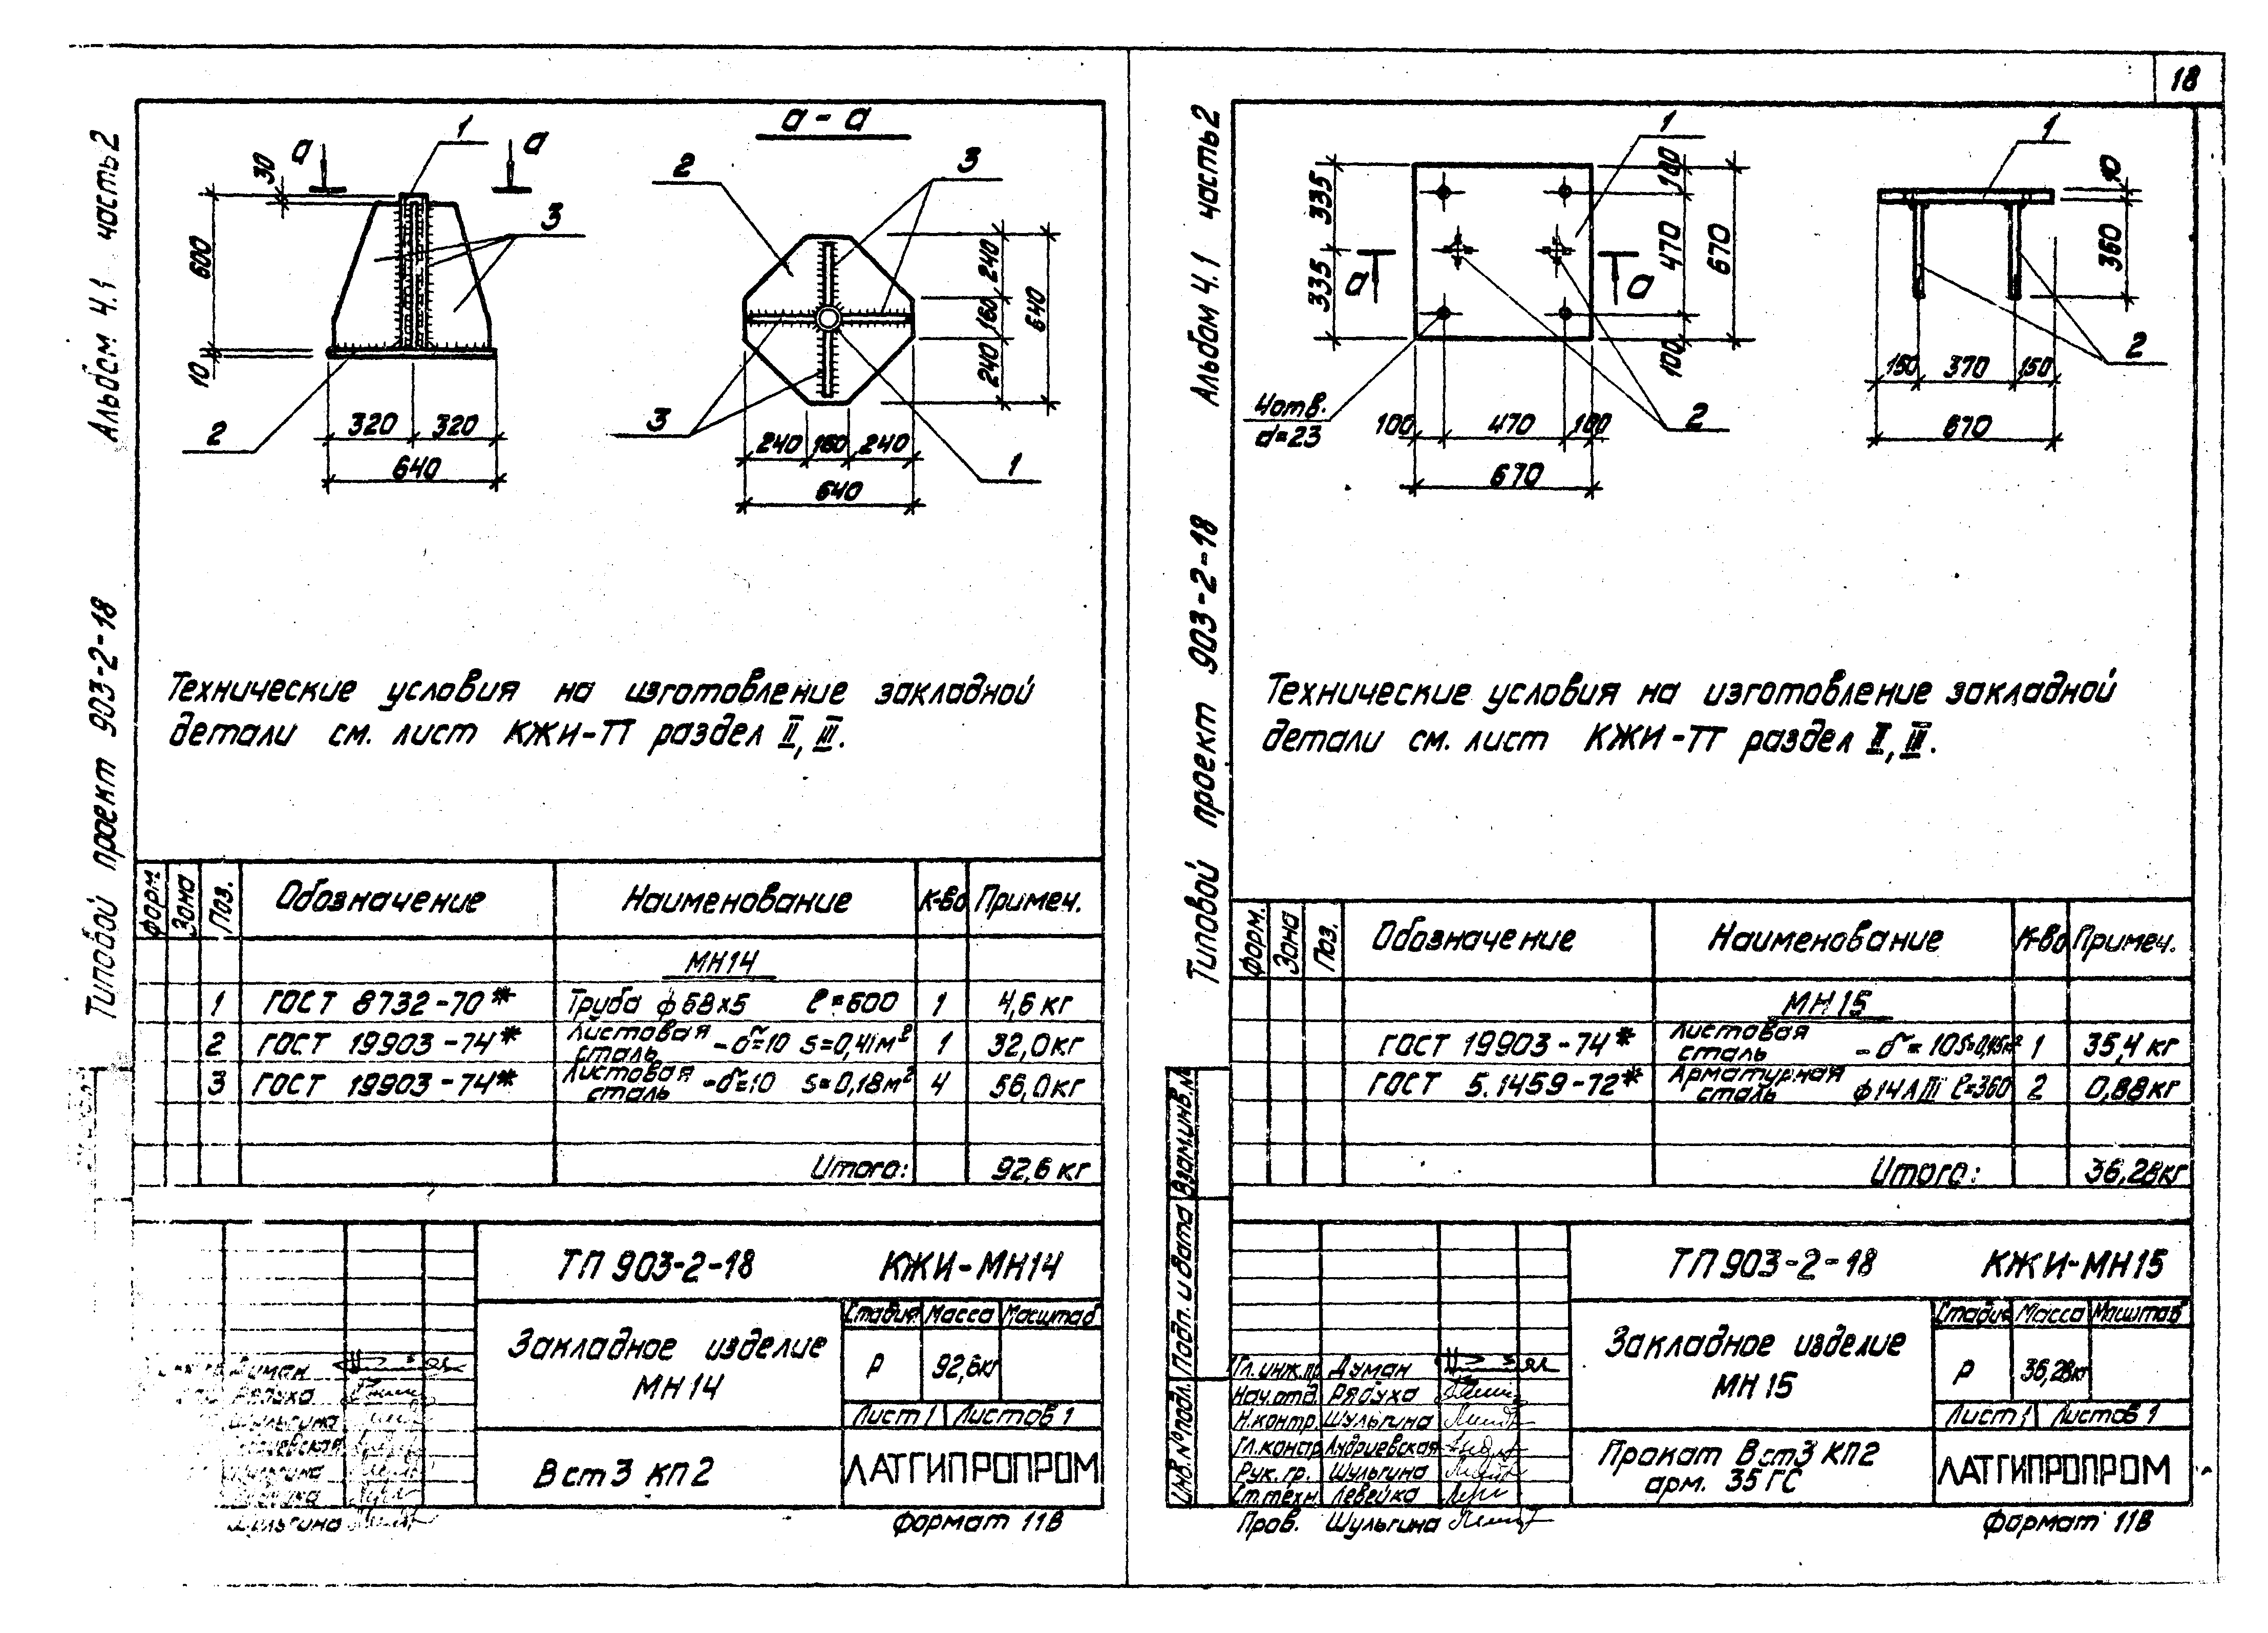 18
Альбом 4.1 часть 2
Типовой проект 903-2-18
а
а
1
3
2
30
600
10
320
320
640
а-а
2
3
3
1
240
160
240
640
240
160
240
640
Технические условия на изготовление закладной
детали см. лист КЖИ-ТТ раздел II, III.
Форм Зона Поз. Обозначение Наименование К-во Примеч.
МН14
1 ГОСТ 8732-70* Труба ф68х5 ℓ=600 1 4,6 кг
2 ГОСТ 19903-74* Листовая сталь -δ=10 s=0,41м² 1 32,0кг
3 ГОСТ 19903-74* Листовая сталь -δ=10 s=0,18м² 4 56,0кг
Итого: 92,6 кг
ТП 903-2-18 КЖИ-МН14
Закладное изделие
МН14
Стадия Масса Масштаб
Р 92,6кг
Лист 1 Листов 1
В ст3 кп2
ЛАТГИПРОПРОМ
Думан
Рябуха
Шульгина
Шульгина
Шульгина
Формат 11В
Альбом 4.1 часть 2
Типовой проект 903-2-18
1
335
335
а
а
100
470
100
670
4отв.
d=23
100
470
100
670
2
1
10
360
2
150
370
150
670
Технические условия на изготовление закладной
детали см. лист КЖИ-ТТ раздел II, III.
Форм. Зона Поз. Обозначение Наименование К-во Примеч.
МН15
ГОСТ 19903-74* Листовая сталь -δ=10 S=0,45м² 1 35,4 кг
ГОСТ 5.1459-72* Арматурная сталь ф14АIII ℓ=360 2 0,88кг
Итого: 36,28кг
Взам.инв.№
Подп. и дата
Инв.№подл.
ТП 903-2-18 КЖИ-МН15
Закладное изделие
МН15
Стадия Масса Масштаб
Р 36,28кг
Лист 1 Листов 1
Прокат В ст3 кп2
арм. 35ГС
ЛАТГИПРОПРОМ
Гл.инж.пр Думан
Нач.отд. Рябуха
Н.контр. Шульгина
Гл.констр. Андриевская
Рук. гр. Шульгина
Ст.техн. Левейка
Пров. Шульгина
Формат 11В